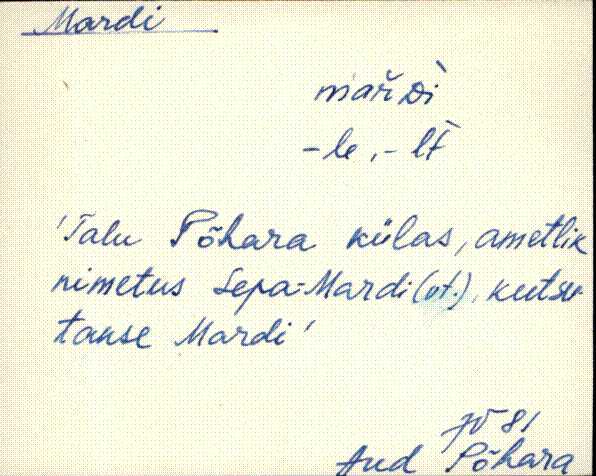 Mardi
mařᴅì
-le, -lt̀
'Talu Põhara külas, ametlik
nimetus Sepa-Mardi (vt.), kutsu-
takse Mardi'
JV 81
Aud Põhara